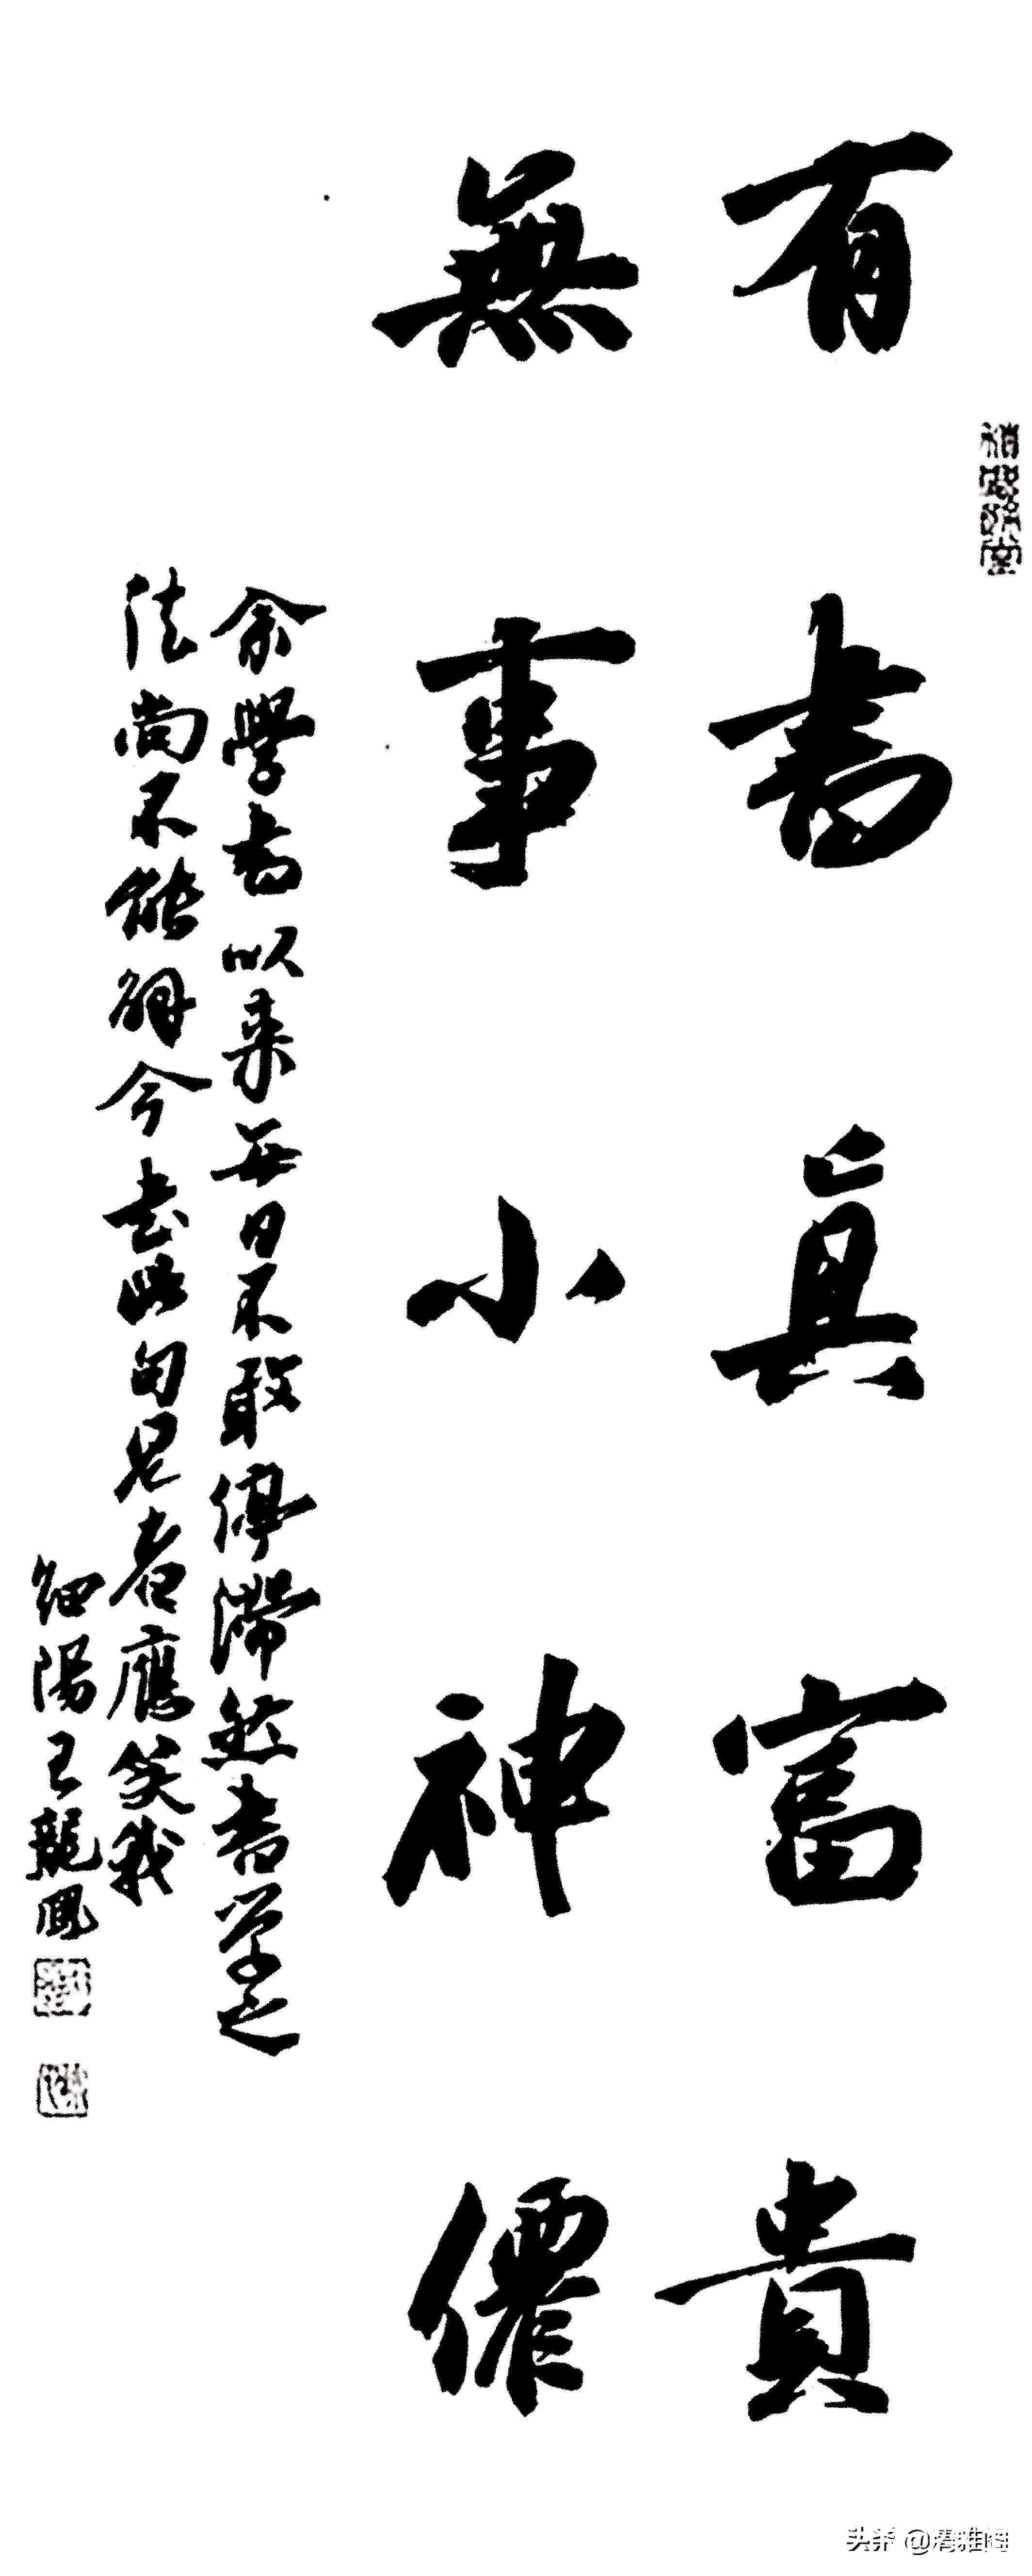 有書真富貴
無事小神僊
余學書以來每日不敢停滯然書學之
法尚不能解今書此句見者應笑我
細陽王龍鳳
头条 @清雅阁